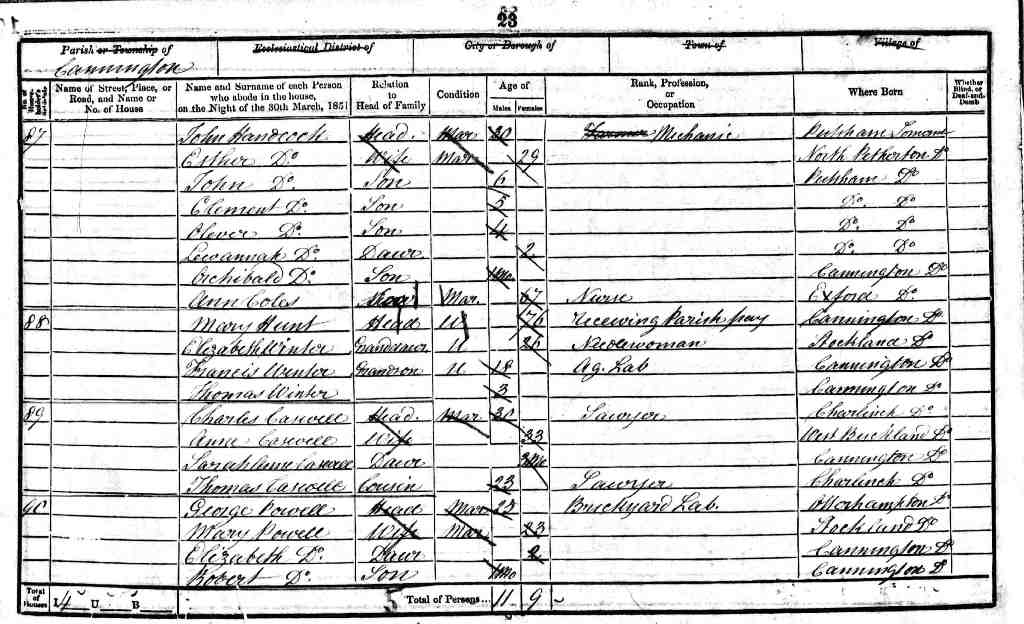 23
Parish or Township of
Ecclesiastical District of
City or Borough of
Town of
Village of
Cannington
Name of Street, Place, or Road, and Name or No. of House
Name and Surname of each Person who abode in the house, on the Night of the 30th March, 1851
Relation to Head of Family
Condition
Age of
Males Females
Rank, Profession, or Occupation
Where Born
Whether Blind, or Deaf-and-Dumb
87 John Handcock Head Mar 30 Farmer Mechanic
Esther Do Wife Mar 29 North Petherton Do
John Do Son 6 Do
Clement Do Son 5 Do Do
Oliver Do Son 4 Do Do
Do Dawr 2 Do Do
Archibald Do Son Mo Cannington Do
Ann Coles Mar. 67 Nurse Exford Do
88 Mary Hunt Head U 76 receiving Parish pay Cannington Do
Elizabeth Winter U 20 Needlewoman Stockland Do
Francis Winter Grandson U 18 Ag. Lab Cannington Do
Thomas Winter 3 Cannington Do
89 Charles Caswell Head Mar 30 Sawyer Charlinch Do
Anne Caswell Wife 33 West Buckland Do
Sarah Anne Caswell Dawr Mo Cannington Do
Thomas Caswell Cousin 23 Sawyer Charlinch Do
90 George Powell Head Mar 25 Brickyard Lab. Otterhampton Do
Mary Powell Wife Mar 23 Stockland Do
Elizabeth Do Dawr 2 Cannington Do
Robert Do Son Mo Cannington Do
Total of Houses I 4 U B 5 Total of Persons... 11 9